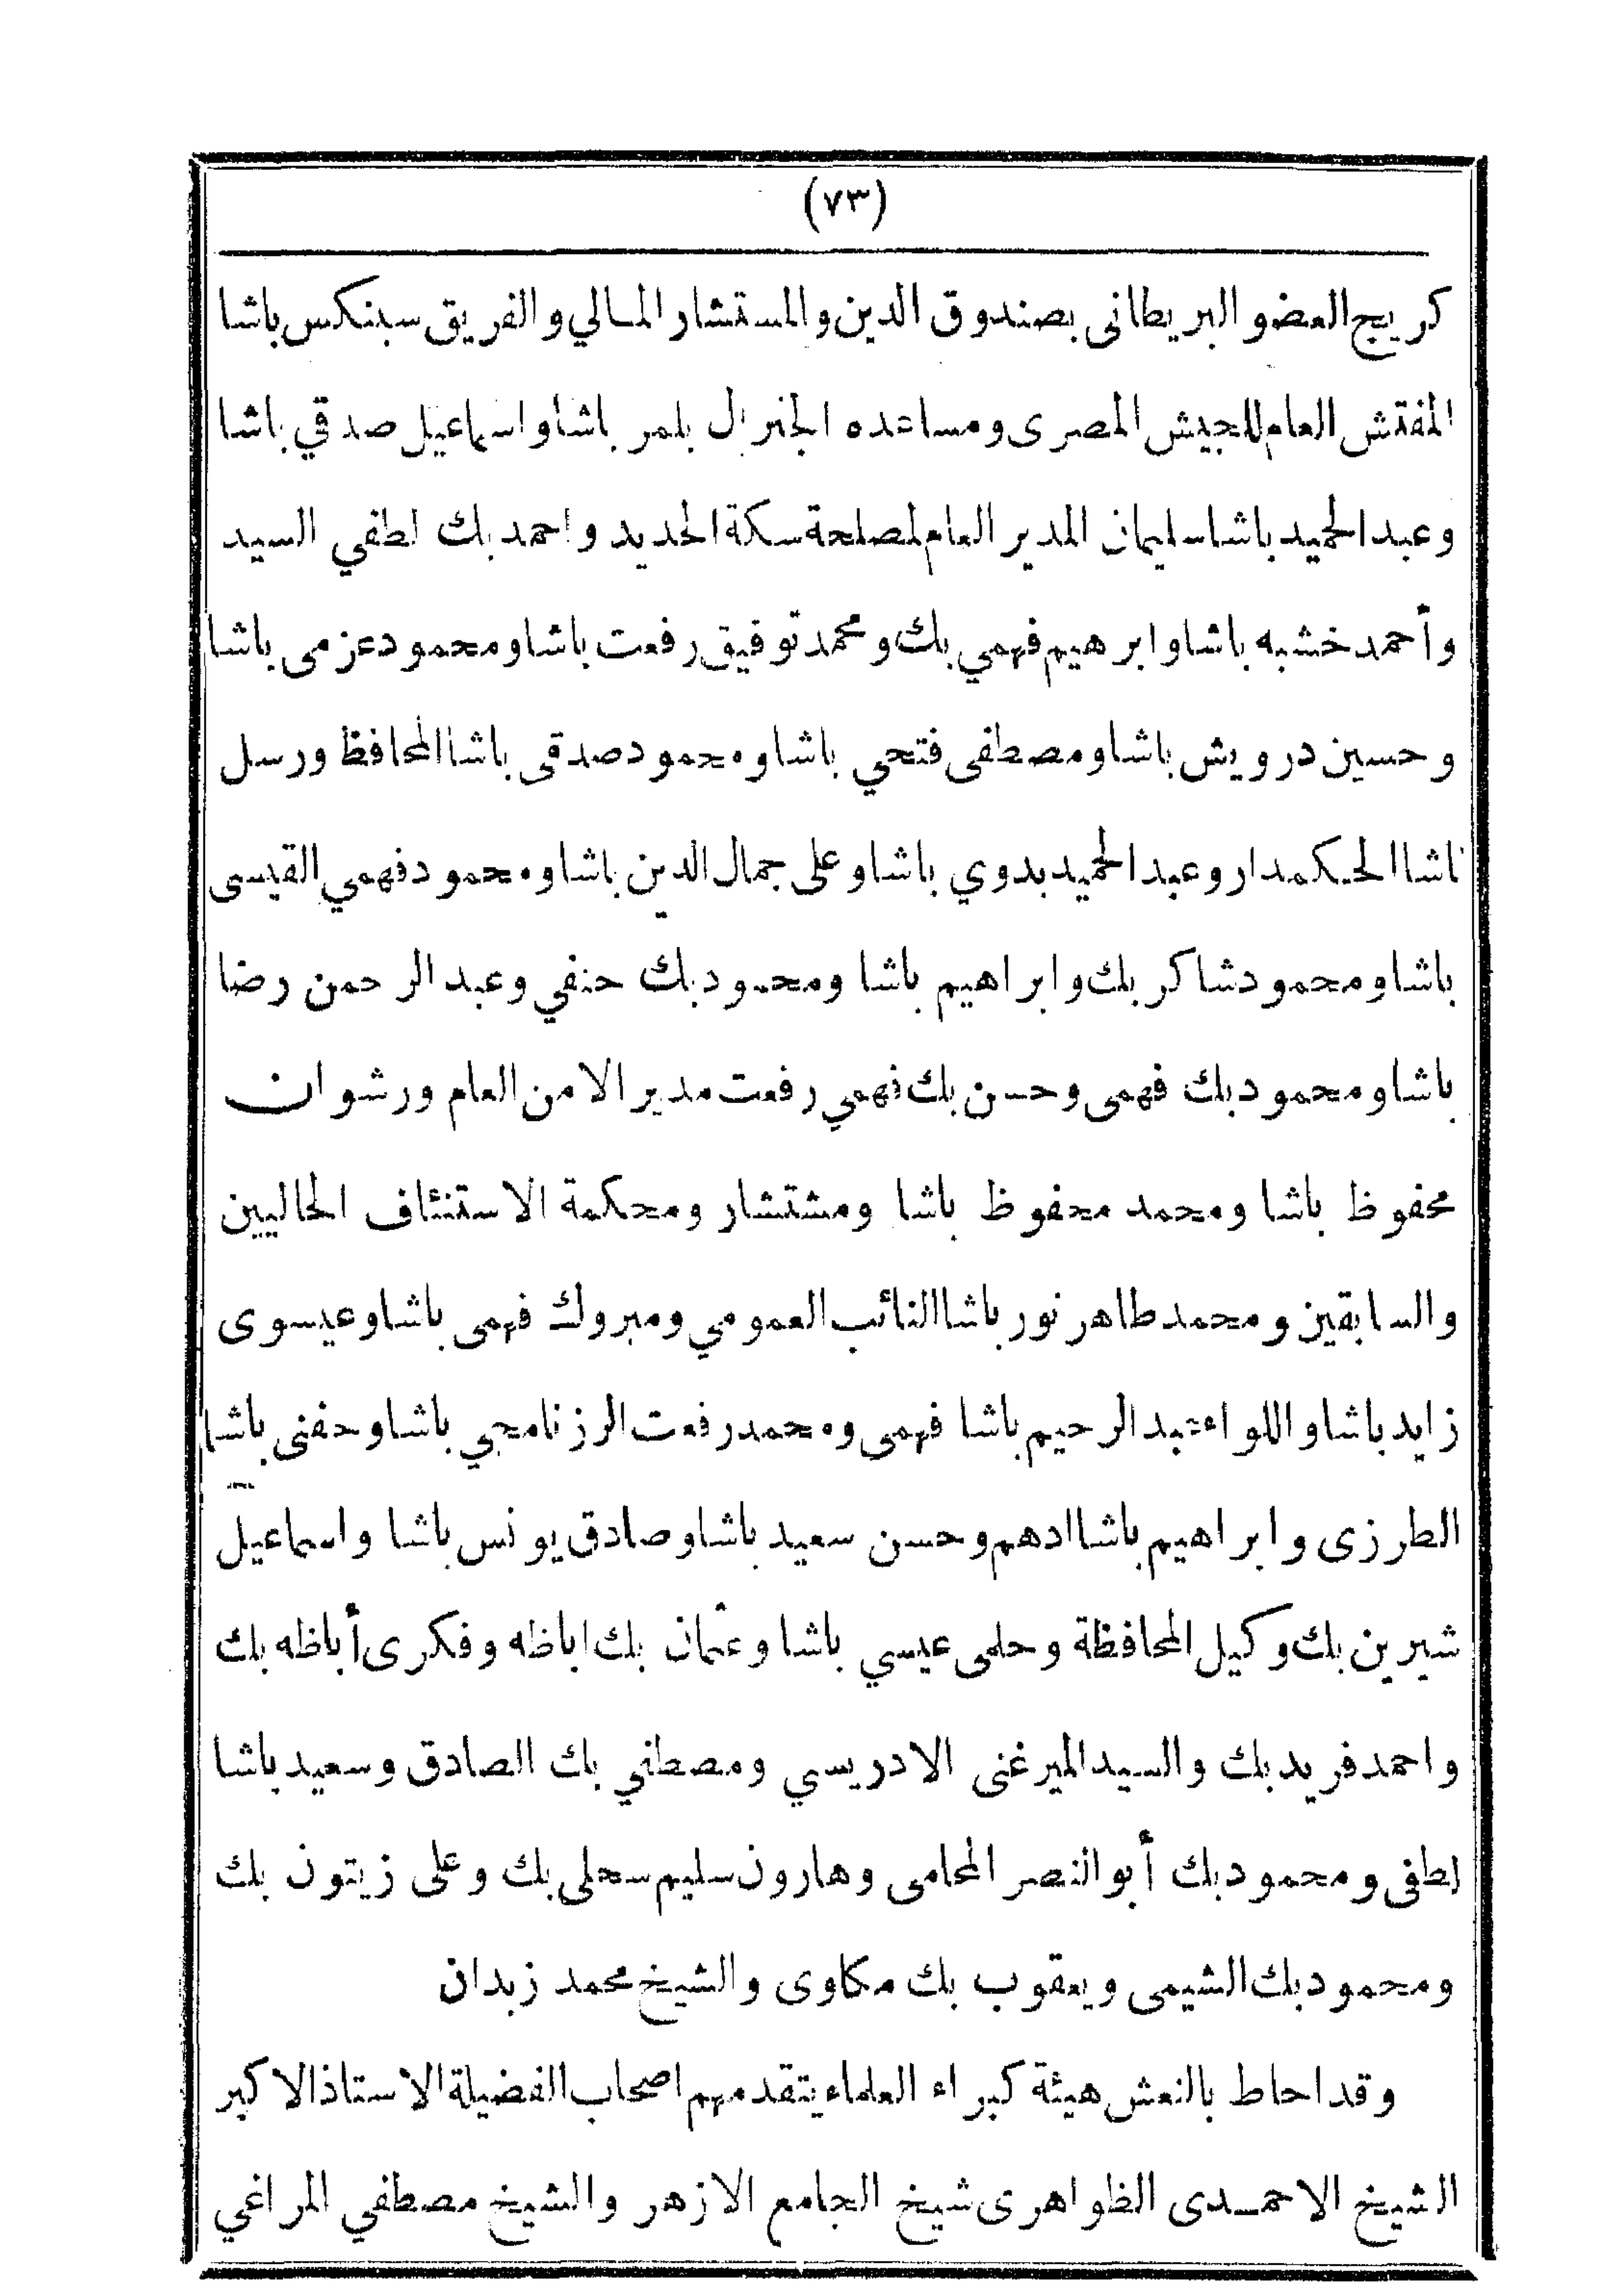 (٧٣)
كريج العضو البريطانى بصندوق الدين والمستشار المالي والفريق سبنكس باشا
المفتش العام للجيش المصرى ومساعده الجنرال بلمر باشا واسماعيل صدقي باشا
وعبد الحميد باشا سليمان المدير العام لمصلحة سكة الحديد واحمد بك لطفي السيد
وأحمد خشبه باشا وابرهيم فهمي بك ومحمد توفيق رفعت باشا ومحمود عزمى باشا
وحسين درويش باشا ومصطفى فتحي باشا ومحمود صدقى باشا المحافظ ورسل
باشا الحكمدار وعبد الحميد بدوي باشا وعلى جمال الدين باشا ومحمود فهمي القيسى
باشا ومحمود شاكر بك وابراهيم باشا ومحمود بك حنفي وعبد الرحمن رضا
باشا ومحمود بك فهمى وحسن بك فهمي رفعت مدير الامن العام ورشوان
محفوظ باشا ومحمد محفوظ باشا ومشتشار ومحكمة الاستنئاف الحاليين
والسابقين ومحمد طاهر نور باشا النائب العمومي ومبروك فهمى باشا وعيسوى
زايد باشا واللواء عبد الرحيم باشا فهمى ومحمد رفعت الرزنامجي باشا وحفنى باشا
الطرزى وابراهيم باشا ادهم وحسن سعيد باشا وصادق يونس باشا واسماعيل
شيرين بك وكيل المحافظة وحلمى عيسي باشا وعثمان بك اباظه وفكرى أباظه بك
واحمد فريد بك والسيد الميرغنى الادريسي ومصطفي بك الصادق وسعيد باشا
لطفى ومحمود بك أبو النصر المحامى وهارون سليم سحلى بك وعلى زيتون بك
ومحمود بك الشيمى ويعقوب بك مكاوى والشيخ محمد زبدان
وقد احاط بالنعش هيئة كبراء العلماء يتقدمهم اصحاب الفضيلة الاستاذ الاكبر
الشيخ الاحمدى الظواهرى شيخ الجامع الازهر والشيخ مصطفي المراغي